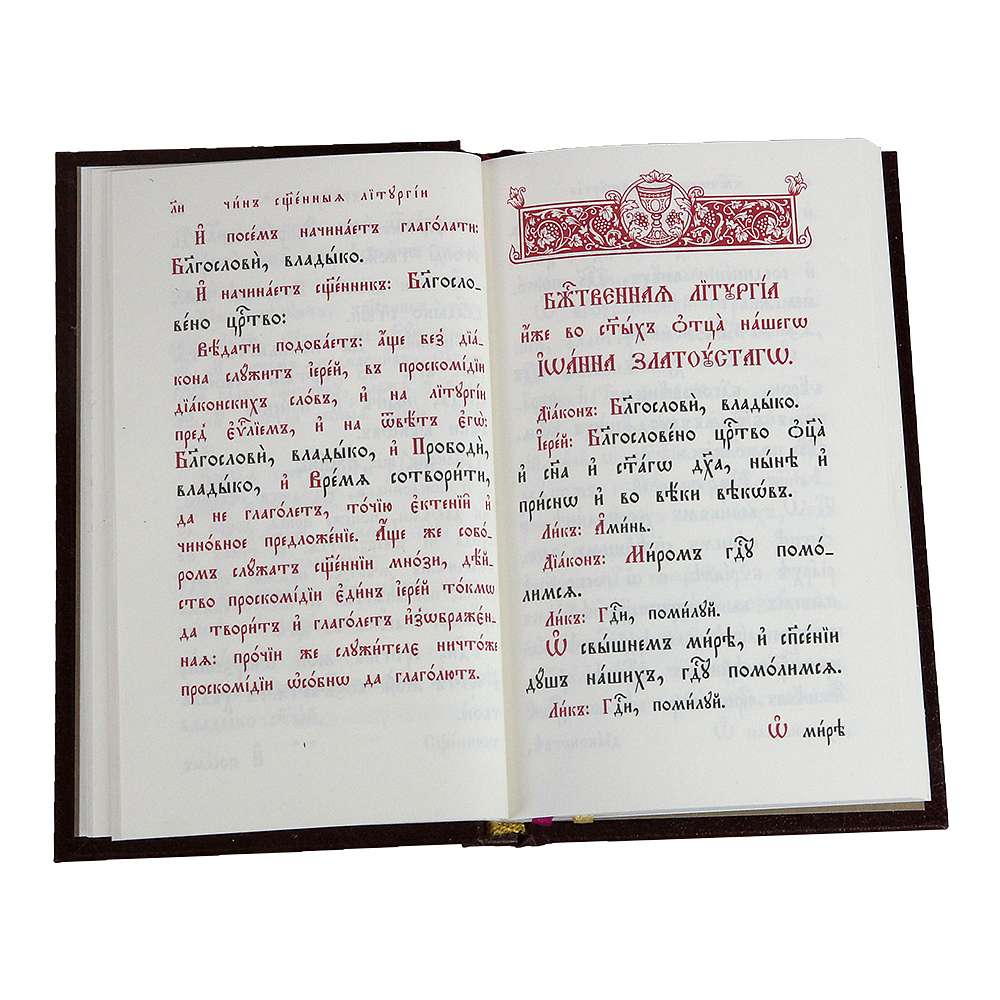 л҃и чи́нъ сщ҃е́нныѧ літꙋргі́и
И҆ посе́мъ начина́етъ глаго́лати:
Бл҃гословѝ, влады́ко.
И҆ начина́етъ сщ҃е́нникъ: Бл҃госло-
ве́но цр҇тво:
Вѣ́дати подоба́етъ: а҆́ще без̾ дїа́-
кона слꙋ́житъ і҆ере́й, въ проскомі́дїи
дїа́конскихъ сло́въ, и҆ на літꙋргі́и
пред̾ є҆ѵⷢ҇лїемъ, и҆ на ѿвѣ́тъ є҆гѡ̀:
Бл҃гословѝ, влады́ко, и҆ Прободѝ,
влады́ко, и҆ Вре́мѧ сотвори́ти,
да не глаго́летъ, то́чїю є҆ктенїи̑ и҆
чино́вное предложе́нїе. А҆́ще же собо́-
ромъ слꙋ́жатъ сщ҃е́ннїи мно́зи, дѣ́й-
ство проскомі́дїи є҆ди́нъ і҆ере́й то́кмѡ
да твори́тъ и҆ глаго́летъ и҆зѡбраже́н-
наѧ: про́чїи же слꙋжи́телє ничто́же
проскомі́дїи ѡ҆со́бнѡ да глаго́лютъ.
БЖ҇ТВЕННАѦ ЛІТꙊРГІ́А
и҆́же во ст҃ы́хъ ѻ҆тца̀ на́шегѡ
І҆ѠА́ННА ЗЛАТОꙊ́СТАГѠ.
Дїа́конъ: Бл҃гословѝ, влады́ко.
І҆ере́й: Бл҃гослове́но цр҇тво ѻ҆ц҃а̀
и҆ сн҃а и҆ ст҃а́гѡ дх҃а, ны́нѣ и҆
при́снѡ и҆ во вѣ́ки вѣкѡ́въ.
Ли́къ: А҆ми́нь.
Дїа́конъ: Ми́ромъ гдⷭ҇ꙋ помо́-
лимсѧ.
Ли́къ: Гдⷭ҇и, поми́лꙋй.
Ѡ҆ свы́шнемъ ми́рѣ, и҆ сп҃се́нїи
дꙋ́шъ на́шихъ, гдⷭ҇ꙋ помо́лимсѧ.
Ли́къ: Гдⷭ҇и, поми́лꙋй.
Ѡ҆ ми́рѣ